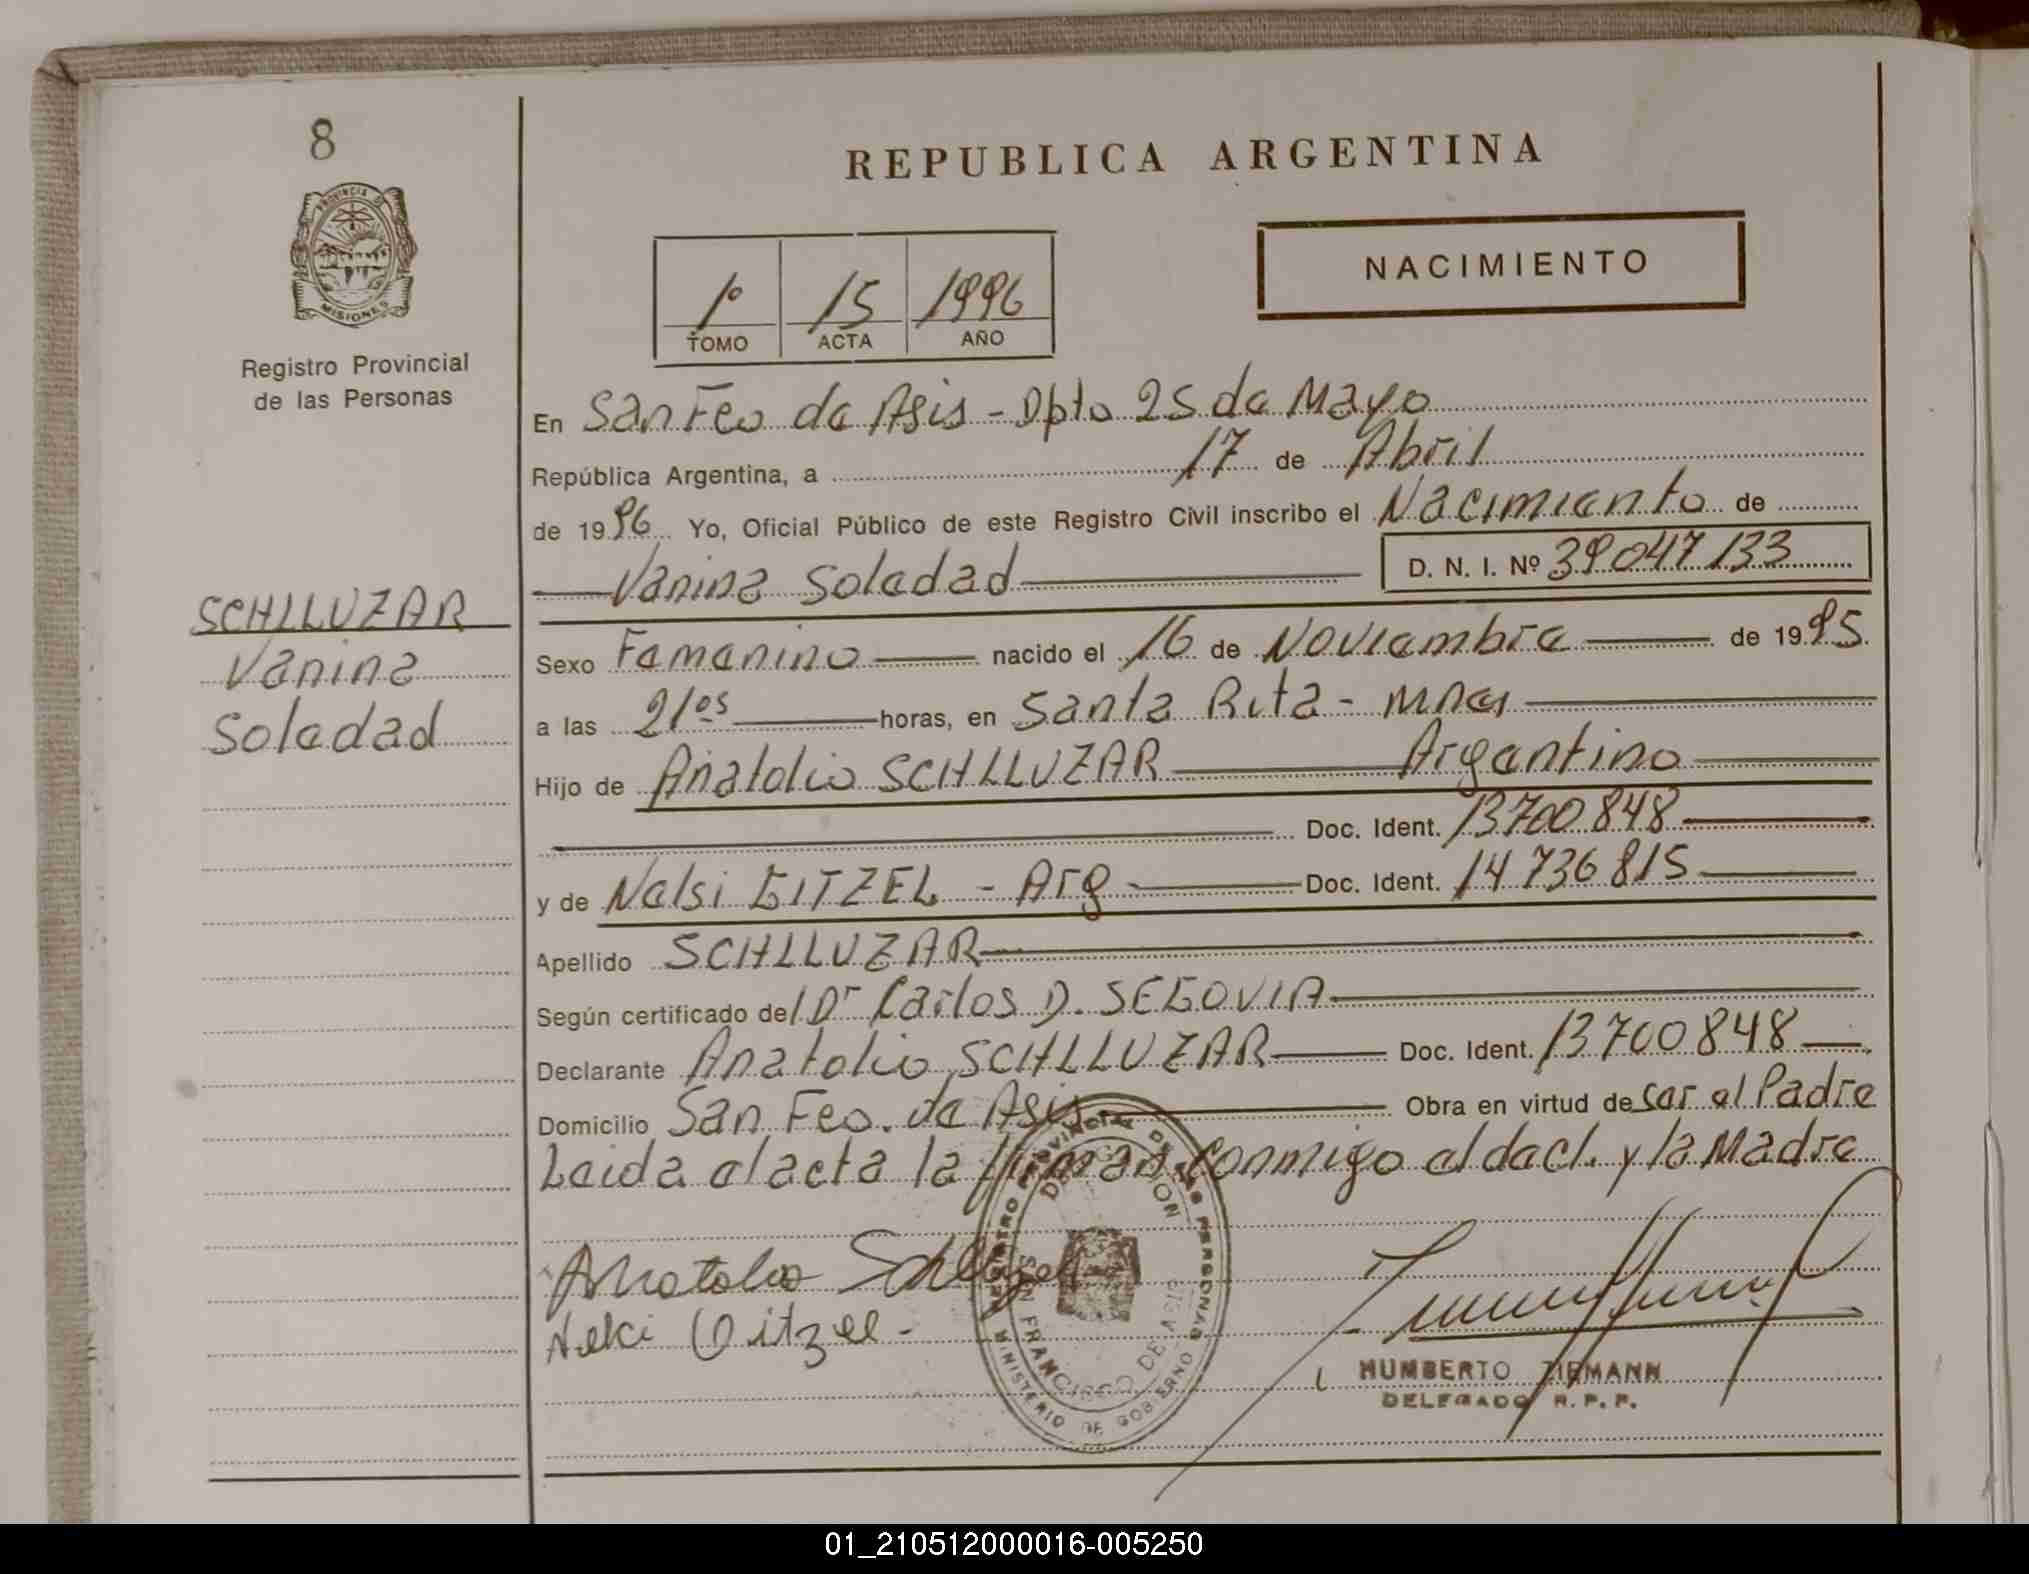 8
REPUBLICA ARGENTINA
PROVINCIA DE
MISIONES
NACIMIENTO
1º 15 1996
TOMO ACTA AÑO
Registro Provincial
de las Personas
En San Fco de Asis - Dpto 25 de Mayo
República Argentina, a 17 de Abril
de 1996 Yo, Oficial Público de este Registro Civil inscribo el Nacimiento de
Vanina Soledad D. N. I. Nº 39 047 133
SCHLLUZAR
Vanina
Soledad
Sexo Femenino nacido el 16 de Noviembre de 1995
a las 21 05 horas, en Santa Rita - Mnes
Hijo de Anatolio SCHLLUZAR Argentino
Doc. Ident. 13700 848
y de Nelsi GITZEL - Arg Doc. Ident. 14 736 815
Apellido SCHLLUZAR
Según certificado del Dr Carlos D. SEGOVIA
Declarante Anatolio SCHLLUZAR Doc. Ident. 13 700 848
Domicilio San Fco. de Asis Obra en virtud de ser el Padre
Leida el acta la firman conmigo el decl. y la Madre
REGISTRO PROVINCIAL DE LAS PERSONAS
DELEGACION
SAN FRANCISCO DE ASIS
MINISTERIO DE GOBIERNO
Anatolio
HUMBERTO ZIEMANN
DELEGADO R. P. P.
01_210512000016-005250